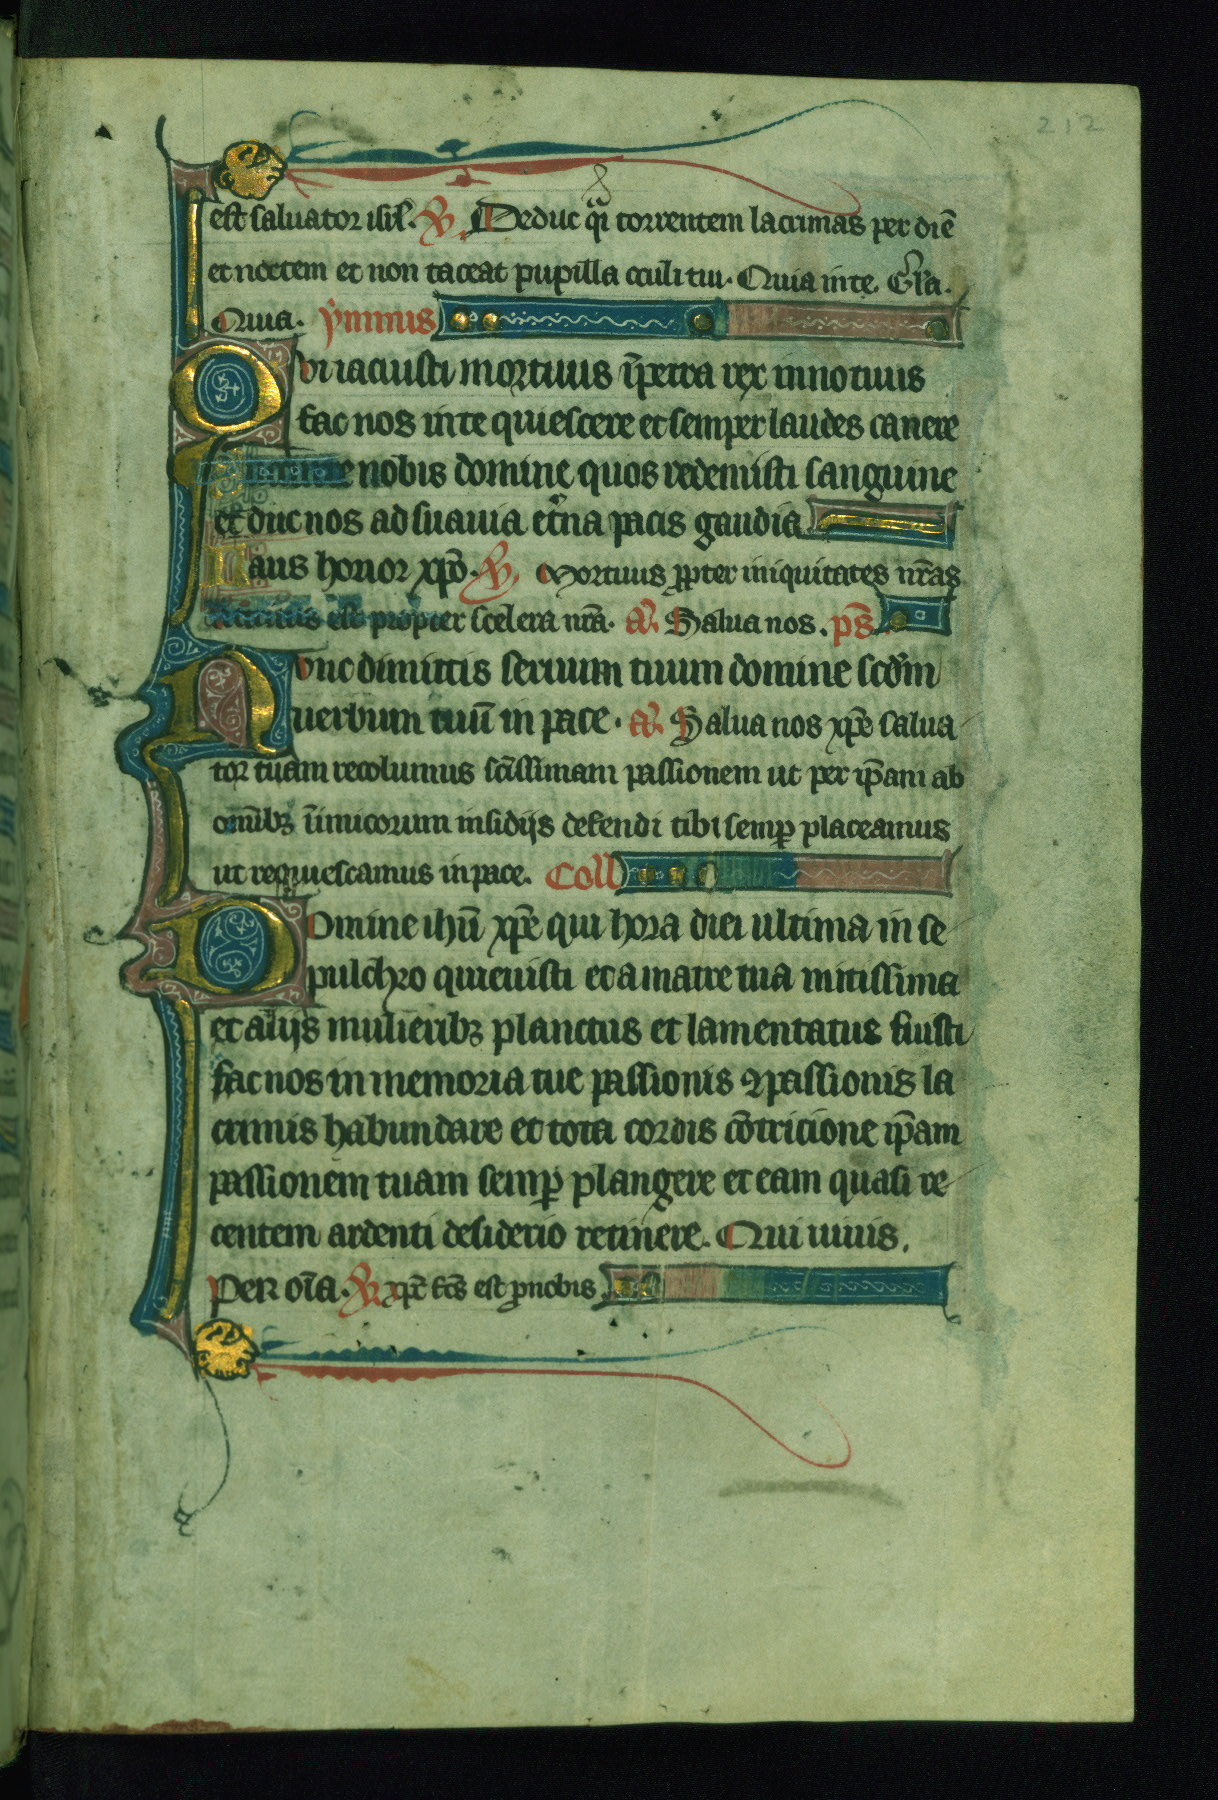 212
est saluator isrl̃. ℣. Deduc q̃i torrentem lacrimas per diẽ
et noctem et non taceat pupilla oculi tui. Quia in te. Gl̃ra.
Quia. ẏmnus
Qvi iacuisti mortuus ĩpetra rex innotuus
fac nos in te quiescere et semper laudes canere
nobis domine quos redemisti sanguine
et duc nos ad suauia et̃na pacis gaudia
Laus honor xp̃o. ℣. Mortuus ꝓpter iniquitates nr̃as
est propter scelera nr̃a. añ. Salua nos. ps̃
Nunc dimittis seruum tuum domine scđm
uerbum tuũ in pace. añ. Salua nos xp̃e salua
tor tuam recolimus sc̃issimam passionem ut per ip̃am ab
omĩbꝫ ĩimicorum insidijs defendi tibi semꝑ placeamus
ut requiescamus in pace. Coll
Domine ihũ xp̃e qui hora diei ultima in se
pulchro quieuisti et a matre tua mitissima
et alijs mulieribꝫ planctus et lamentatus fuisti
fac nos in memoria tue passionis ⁊ passionis la
crimis habundare et tota cordis cõtricione ip̃am
passionem tuam semꝑ plangere et eam quasi re
centem ardenti desiderio retinere. Qui uiuis.
Per oĩa. ℟ xp̃c fc̃s est ꝓ nobis